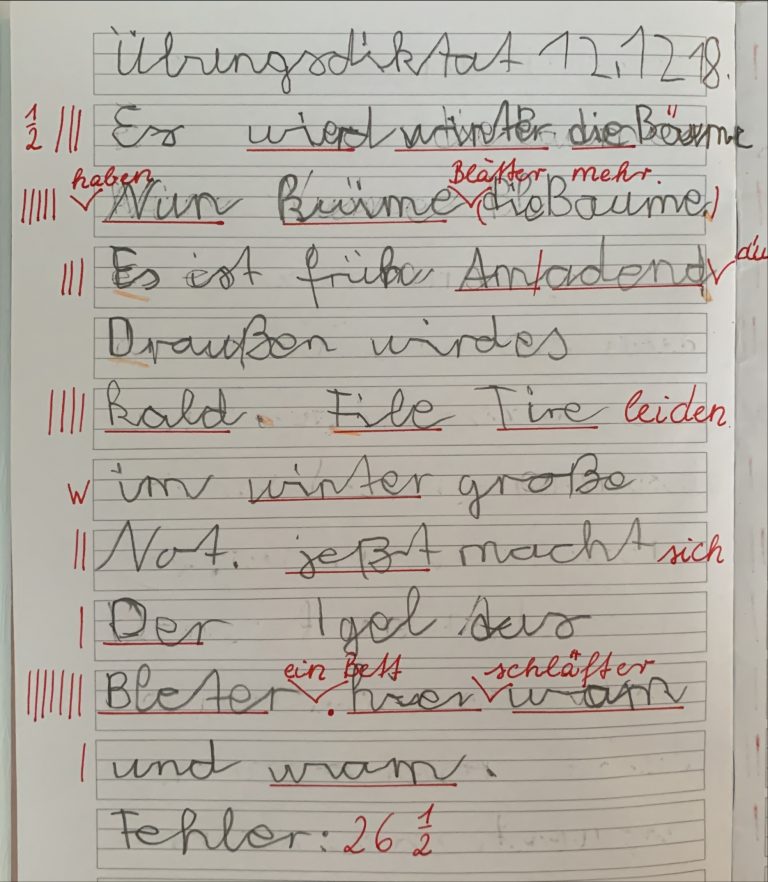 Übungsdiktat 12.12 18.
1/2 |||  Es wierd winter die Bäume
haben Blätter mehr.
||||| Nun Bäume (die Baume)
||| Es ist früba Amtadend du
Draußen wirdes
|||| kald. File Tire leiden
w im winter große
|| Not. jeßt macht sich
| Der Igel aus
ein Bett schläfter
||||||| Bleter. hier wam
| und wram.
Fehler: 26 1/2